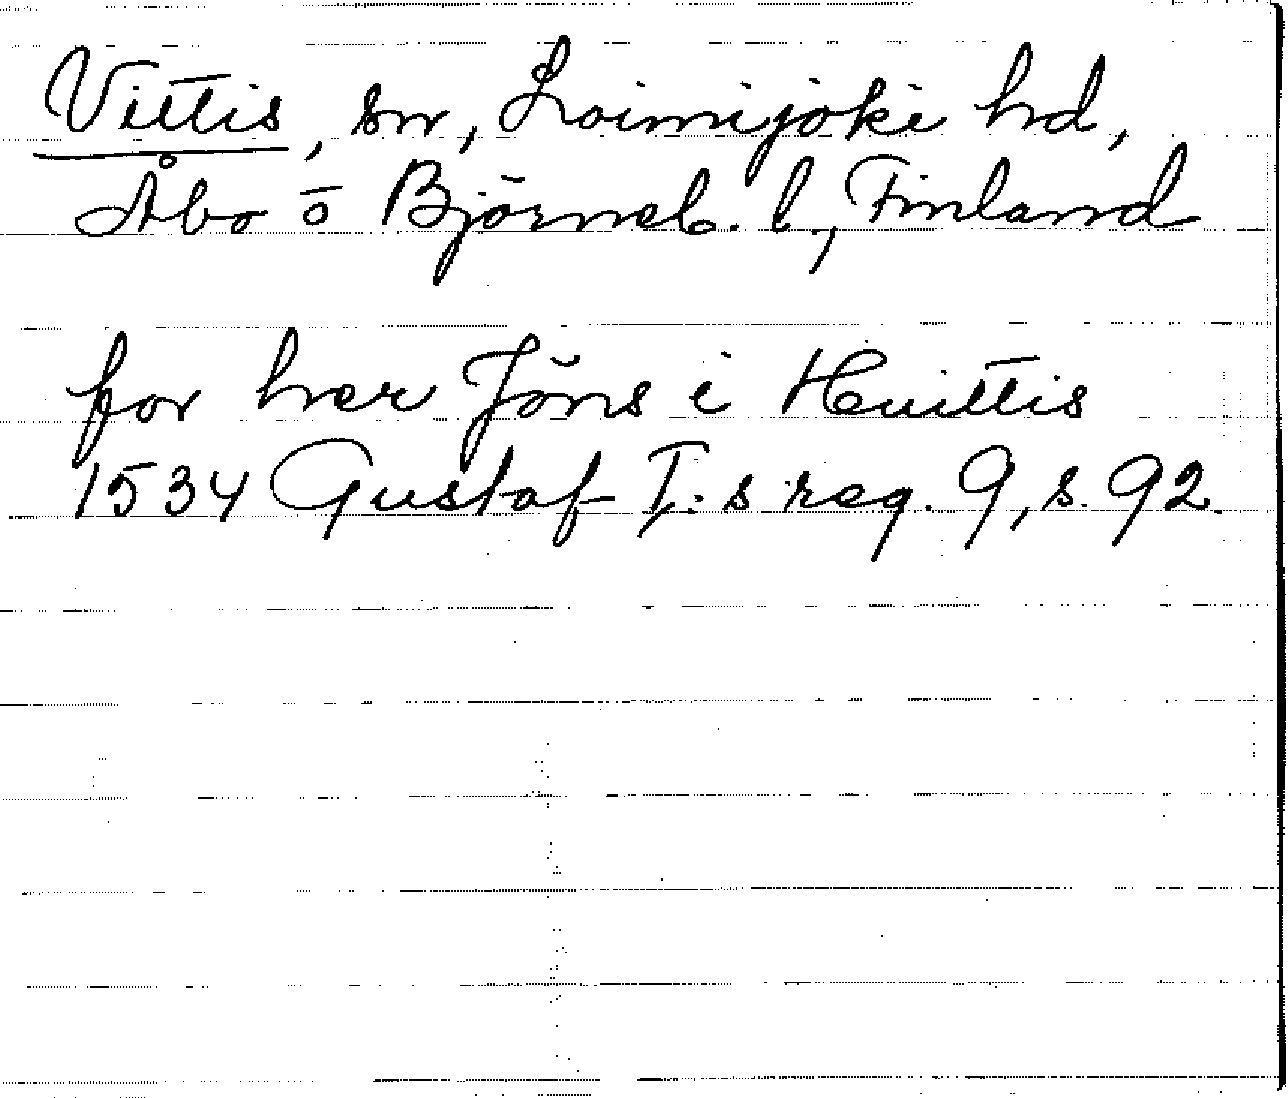 Vittis, sn, Loimijoki hd,
Åbo ō Björneb. l., Finland
for her Jöns i Huittis
1534 Gustaf I:s reg. 9, s. 92.